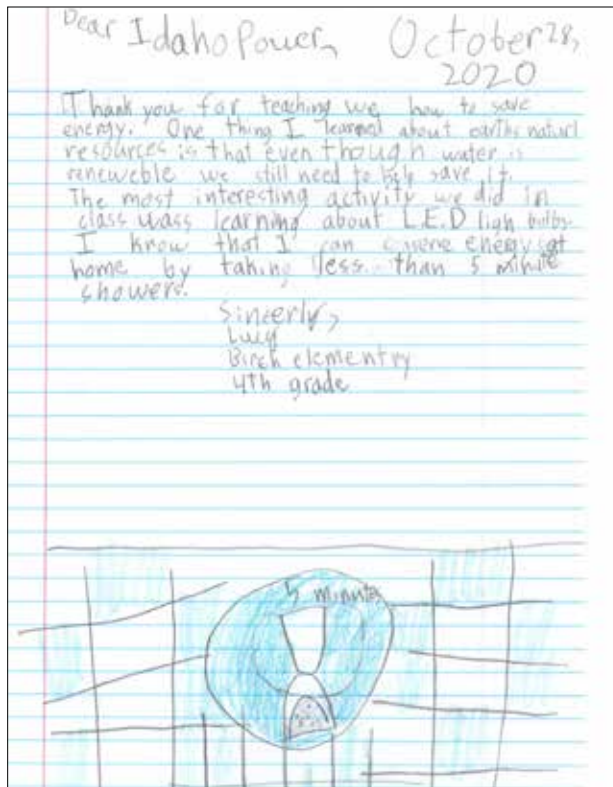 Dear Idaho Power, October 28,
2020
Thank you for teaching we how to save
energy. One thing I learned about earths naturl
resources is that even though water is
reneweble we still need to help save it.
The most interesting activity we did in
class wass learning about L.E.D ligh bulbs.
I know that I can conserve energy at
home by taking less than 5 minute
showers.
Sincerly,
Lucy
Birch elementry
4th grade
5 minutes